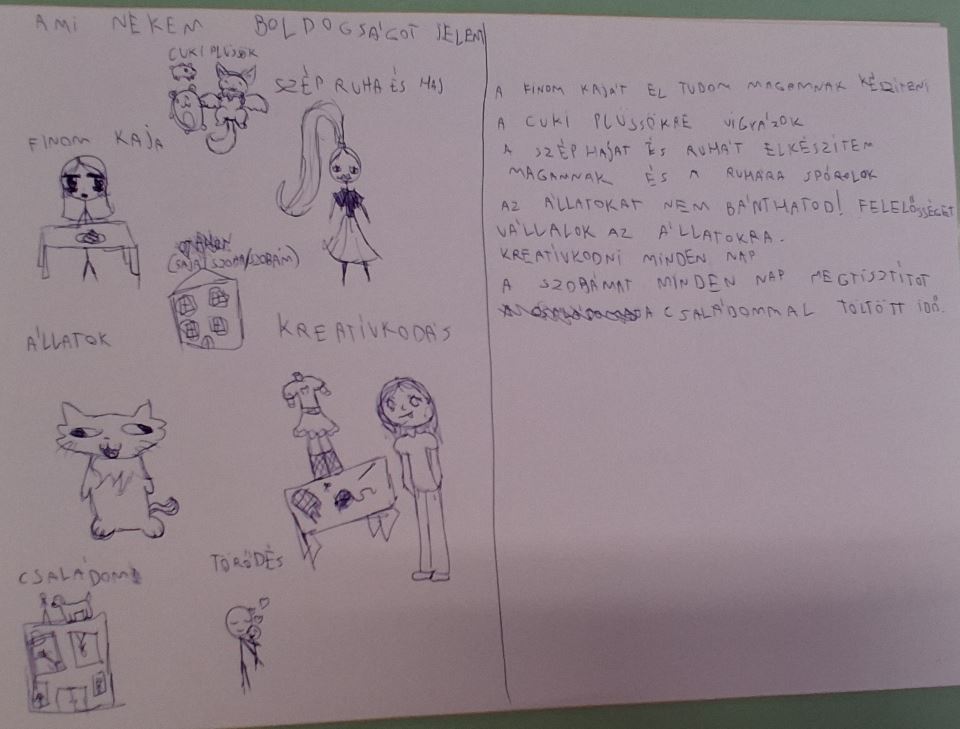 AMI NEKEM BOLDOGSÁGOT JELENT
CUKI PLÜSSÖK
SZÉP RUHA ÉS HAJ
FINOM KAJA
(SAJÁT SZOBA/SZOBÁM)
ÁLLATOK
KREATÍVKODÁS
CSALÁDOM
TÖRŐDÉS
A FINOM KAJÁT EL TUDOM MAGAMNAK KÉSZÍTENI
A CUKI PLÜSSÖKRE VIGYÁZOK
A SZÉP HAJAT ÉS RUHÁT ELKÉSZÍTEM
MAGAMNAK ÉS A RUHÁRA SPÓROLOK
AZ ÁLLATOKAT NEM BÁNTHATOD! FELELŐSSÉGET
VÁLLALOK AZ ÁLLATOKRA.
KREATÍVKODNI MINDEN NAP
A SZOBÁMAT MINDEN NAP MEGTISZTÍTOT
A CSALÁDOMMAL TÖLTÖTT IDŐ.